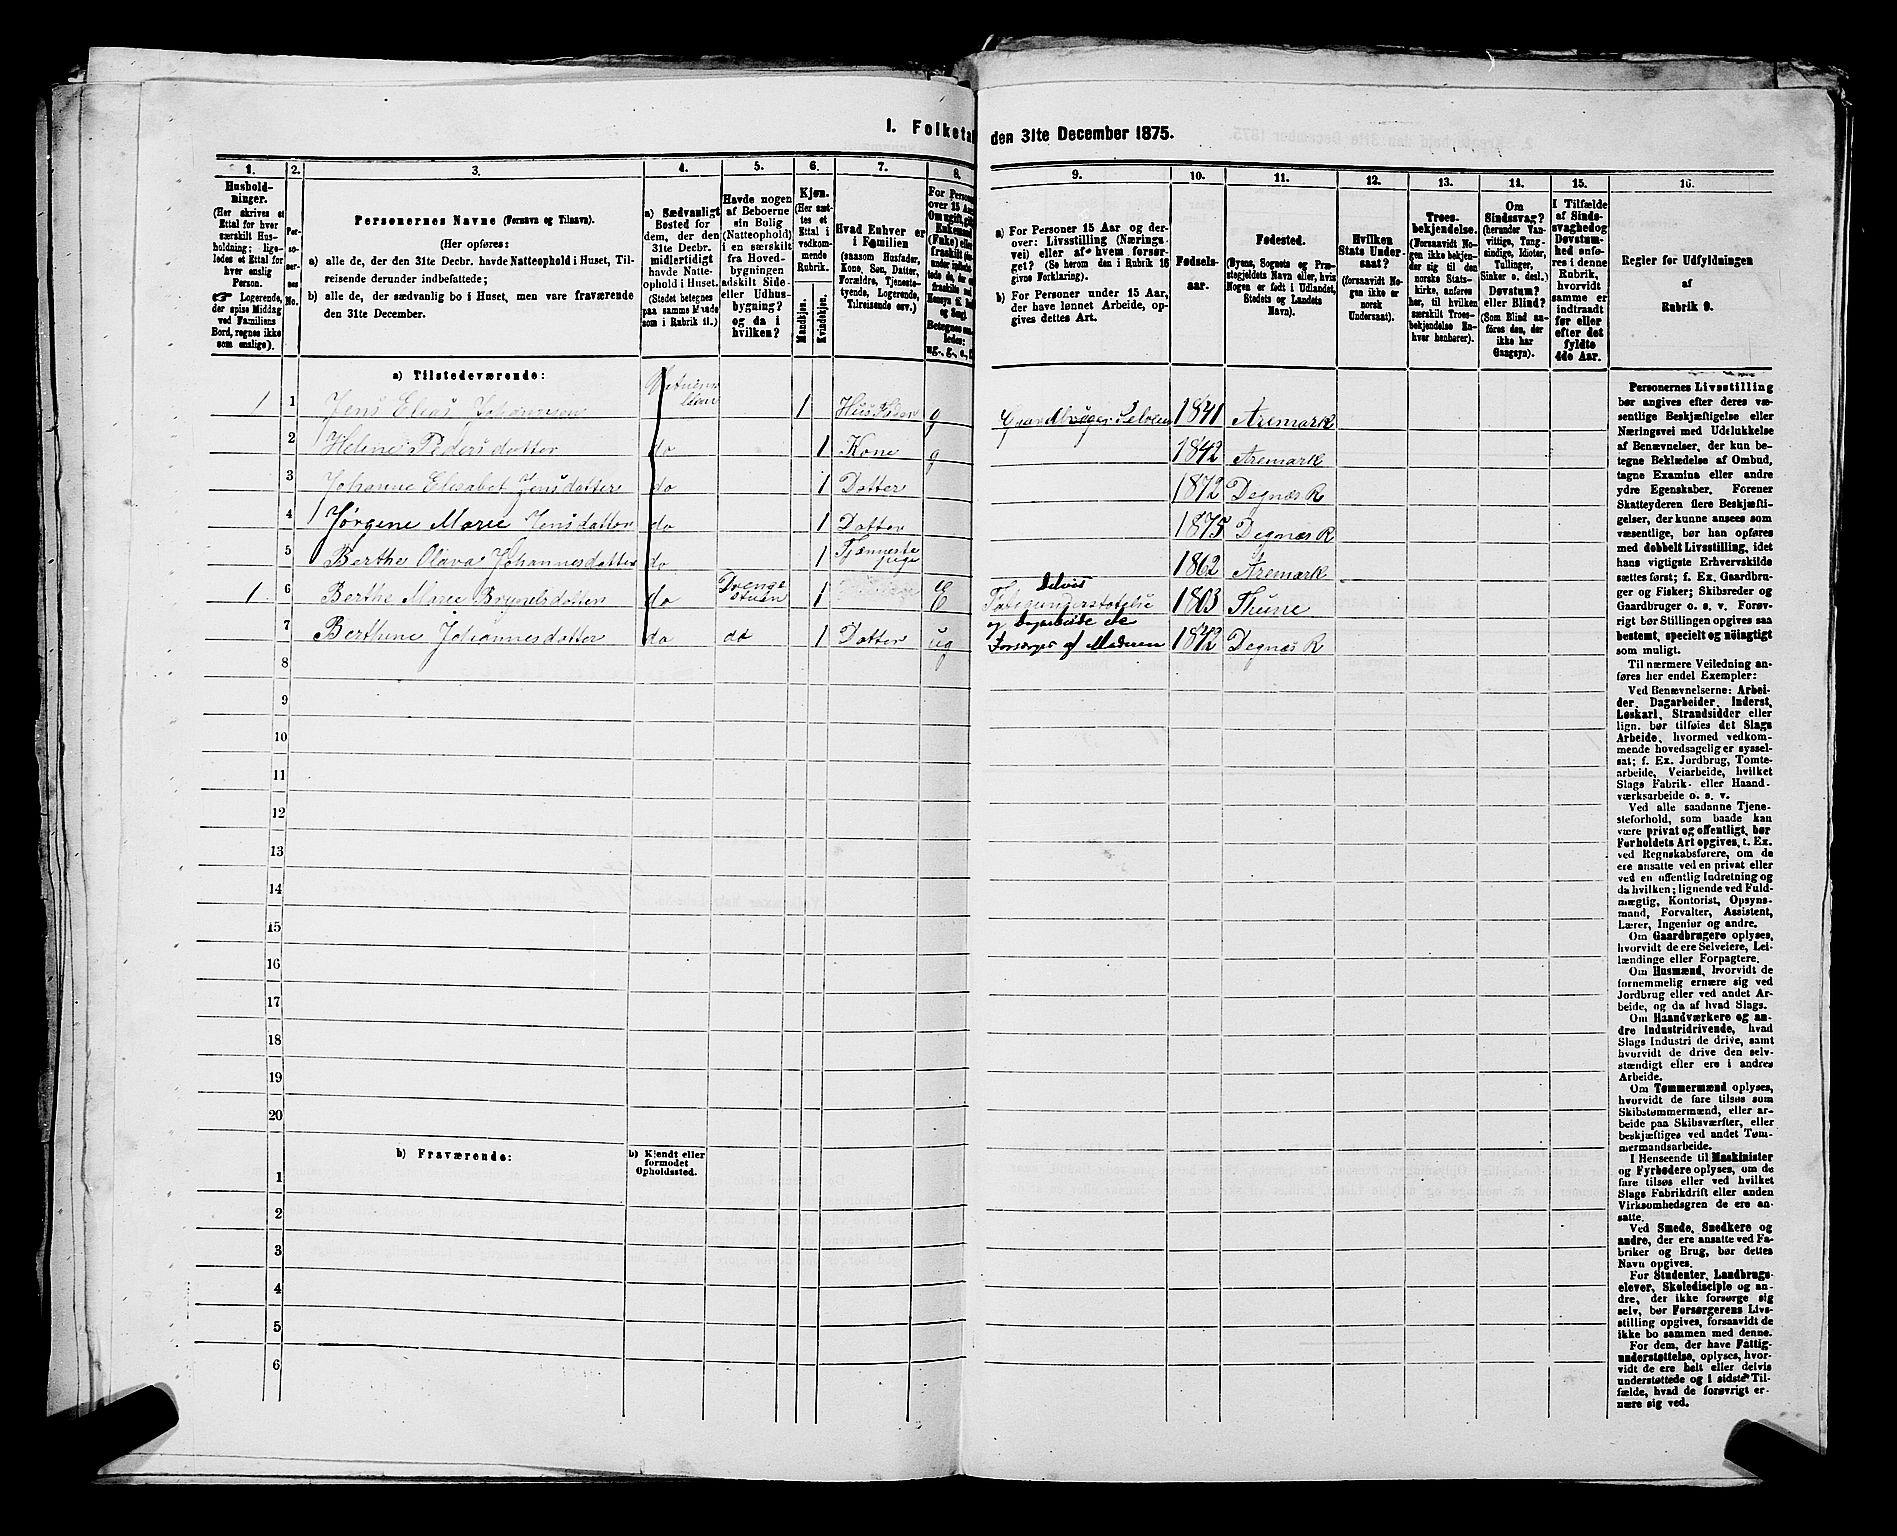 1. Folketal den 31te December 1875.
1.
2.
3.
4.
5.
6.
7.
8.
9.
10.
11.
12.
13.
14.
15.
16.
Hushold-
ninger.
(Her skrives et
Ettal for hver
særskilt Hus-
holdning; lige-
ledes et Ettal for
hver enslig
Person.
☛ Logerende,
der spise Middag
ved Familiens
Bord, regnes ikke
som enslige).
Per-
so-
ner-
nes
No.
Personernes Navne (Fornavn og Tilnavn).
(Her opføres:
a) alle de, der den 31te Decbr. havde Natteophold i Huset, Til-
reisende derunder indbefattede;
b) alle de, der sædvanlig bo i Huset, men vare fraværende
den 31te December.
a) Sædvanligt
Bosted for
dem, der den
31te Decbr.
midlertidigt
havde Natte-
ophold i Huset.
(Stedet betegnes
paa samme Maade
som i Rubrik 11.)
Havde nogen
af Beboerne
sin Bolig
(Natteophold)
i en særskilt
fra Hoved-
bygningen
adskilt Side-
eller Udhus-
bygning?
og da i
hvilken?
Kjøn.
(Her sæt-
tes et
Ettal i
vedkom-
mende
Rubrik.
Mandkjøn.
Kvindekjøn.
Hvad Enhver er
i Familien
(saasom Husfader,
Kone, Søn, Datter,
Forældre, Tjeneste-
tyende, Logerende,
Tilreisende osv.)
For Personer
over 15 Aar
Om ugift, gift,
Enkemand
(Enke) eller
fraskilt
Betegnes saa-
ledes:
ug., g., e., f.
a) For Personer 15 Aar og der-
over: Livsstilling (Nærings-
vei) eller af hvem forsør-
get? (Se herom den i Rubrik 16
givne Forklaring.)
b) For Personer under 15 Aar,
der have lønnet Arbeide, op-
gives dettes Art.
Fødsels-
aar.
Fødested.
(Byens, Sognets og Præ-
stegjeldets Navn eller, hvis
Nogen er født i Udlandet,
Stedets og Landets
Navn).
Hvilken
Stats Under-
saat?
(forsaavidt No-
gen ikke er
norsk
Undersaat).
Troes-
bekjendelse.
(Forsaavidt No-
gen ikke bekjen-
der sig til den
norske Stats-
kirke, anføres
her, til hvilken
særskilt Troes-
bekjendelse En-
hver henhører).
Om
Sindssvag?
(herunder Van-
vittige, Tung-
sindige, Idioter,
Tullinger,
Sinker o. desl.)
Døvstum?
eller Blind?
(Som Blind an-
føres den, der
ikke har
Gangsyn).
I Tilfælde
af Sinds-
svaghed og
Døvstum-
hed anfø-
res i denne
Rubrik,
hvorvidt
samme er
indtraadt
før eller
efter det
fyldte
4de Aar.
Regler for Udfyldningen
af
Rubrik 9.
a) Tilstedeværende:
1 1 Jens Elias Johannesen 1 Husfader g Gaardbruger Selveier 1841 Aremark
2 Heline Pedersdatter do 1 Kone g 1842 Aremark
3 Johanne Elisabet Jensdatter do 1 Datter 1872 Degnæs R
4 Jørgene Marie Jensdatter do 1 Datter 1875 Degnæs R
5 Berthe Olava Johannesdatter do 1 Tjenneste pige 1862 Aremark
1 6 Berthe Marie Brynelsdatter do Drenge stuen 1 E Delvis Fatigunderstøttelse 1803 Thune
og Dagarbeide de
7 Berthine Johannesdatter do do 1 Datter ug Forsørges af Moderen 1842 Degnæs R
8
9
10
11
12
13
14
15
16
17
18
19
20
b) Fraværende:
b) Kjendt eller
formodet
Opholdssted.
1
2
3
4
5
6
Personernes Livsstilling
bør angives efter deres væ-
sentlige Beskjæftigelse eller
Næringsvei med Udelukkelse
af Benævnelser, der kun be-
tegne Beklædelse af Ombud,
tagne Examina eller andre
ydre Egenskaber. Forener
Skatteyderen flere Beskjæfti-
gelser, der kunne ansees som
væsentlige, bør han opføres
med dobbelt Livsstilling, idet
hans vigtigste Erhvervskilde
sættes først; f. Ex. Gaardbru-
ger og Fisker; Skibsreder og
Gaardbruger o. s. v. Forøv-
rigt bør Stillingen opgives saa
bestemt, specielt og nöiagtigt
som muligt.
Til nærmere Veiledning an-
føres her endel Exempler:
Ved Benævnelserne: Arbei-
der, Dagarbeider, Inderst,
Løskarl, Strandsidder eller
lign. bør tilføies det Slags
Arbeide, hvormed vedkom-
mende hovedsagelig er syssel-
sat; f. Ex. Jordbrug, Tomte-
arbeide, Veiarbeide, hvilket
Slags Fabrik- eller Haand-
værksarbeide o. s. v.
Ved alle saadanne Tjene-
steforhold, som baade kan
være privat og offentligt, bør
Forholdets Art opgives, t. Ex.
ved Regnskabsførere, om de
ere ansatte ved en privat eller
ved en offentlig Indretning og
da hvilken; lignende ved Fuld-
mægtig, Kontorist, Opsyns-
mand, Forvalter, Assistent,
Lærer, Ingeniør og andre.
Om Gaardbrugere oplyses,
hvorvidt de ere Selveiere, Lei-
lændinge eller Forpagtere.
Om Husmænd, hvorvidt de
fornemmelig ernære sig ved
Jordbrug eller ved andet Ar-
beide, og da af hvad Slags.
Om Haandværkere og an-
dre Industridrivende, hvad
Slags Industri de drive, samt
hvorvidt de drive den selv-
stændigt eller ere i andres
Arbeide.
Om Tømmermænd oplyses,
hvorvidt de fare tilsøs som
Skibstømmermænd, eller ar-
beide paa Skibsværfter, eller
beskjæftiges ved andet Tøm-
mermandsarbeide.
I Henseende til Maskinister
og Fyrbødere oplyses, om de
fare tilsøs eller ved hvilket
Slags Fabrikdrift eller anden
Virksomhedsgren de ere an-
satte.
Ved Smede, Snedkere og
andre, der ere ansatte ved Fa-
briker og Brug, bør dettes
Navn opgives.
For Studenter, Landbrugs-
elever, Skoledisciple og an-
dre, der ikke forsørge sig
selv, bør Forsørgerens Livs-
stilling opgives, forsaavidt de
ikke bo sammen med denne.
For dem, der have Fattig-
understøttelse, oplyses, hvor-
vidt de ere helt eller delvis
understøttede og i sidste Til-
fælde, hvad de forøvrigt er-
nære sig ved.